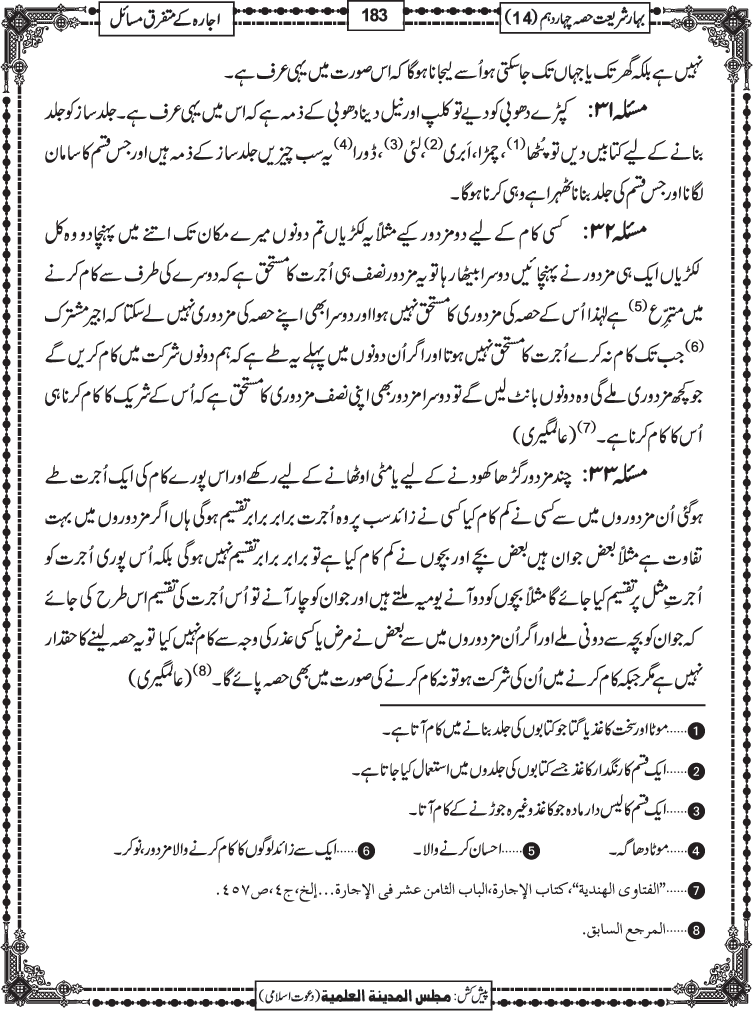 بہارِ شریعت حصہ چہاردہم (14)
183
اجارہ کے متفرق مسائل
نہیں ہے بلکہ گھر تک یا جہاں تک جاسکتی ہو اُسے لیجانا ہوگا کہ اس صورت میں یہی عرف ہے۔
مسئلہ ۳۱: کپڑے دھوبی کو دیے تو کلپ اور نیل دینا دھوبی کے ذمہ ہے کہ اس میں یہی عرف ہے۔ جلد ساز کو جلد
بنانے کے لیے کتابیں دیں تو پُٹھا(1)، چمڑا، اَبری(2)، لئی(3)، ڈورا(4) یہ سب چیزیں جلد ساز کے ذمہ ہیں اور جس قسم کا سامان
لگانا اور جس قسم کی جلد بنانا ٹھہرا ہے وہی کرنا ہوگا۔
مسئلہ ۳۲: کسی کام کے لیے دو مزدور کیے مثلاً یہ لکڑیاں تم دونوں میرے مکان تک اتنے میں پہنچا دو وہ کل
لکڑیاں ایک ہی مزدور نے پہنچائیں دوسرا بیٹھا رہا تو یہ مزدور نصف ہی اُجرت کا مستحق ہے کہ دوسرے کی طرف سے کام کرنے
میں متبرِّع(5) ہے لہٰذا اُس کے حصہ کی مزدوری کا مستحق نہیں ہوا اور دوسرا بھی اپنے حصہ کی مزدوری نہیں لے سکتا کہ اجیر مشترک
(6) جب تک کام نہ کرے اُجرت کا مستحق نہیں ہوتا اور اگر اُن دونوں میں پہلے یہ طے ہے کہ ہم دونوں شرکت میں کام کریں گے
جو کچھ مزدوری ملے گی وہ دونوں بانٹ لیں گے تو دوسرا مزدور بھی اپنی نصف مزدوری کا مستحق ہے کہ اُس کے شریک کا کام کرنا ہی
اُس کا کام کرنا ہے۔(7) (عالمگیری)
مسئلہ ۳۳: چند مزدور گڑھا کھودنے کے لیے یا مٹی اوٹھانے کے لیے رکھے اور اس پورے کام کی ایک اُجرت طے
ہوگئی اُن مزدوروں میں سے کسی نے کم کام کیا کسی نے زائد سب پر وہ اُجرت برابر برابر تقسیم ہوگی ہاں اگر مزدوروں میں بہت
تفاوت ہے مثلاً بعض جوان ہیں بعض بچے اور بچوں نے کم کام کیا ہے تو برابر برابر تقسیم نہیں ہوگی بلکہ اُس پوری اُجرت کو
اُجرتِ مثل پر تقسیم کیا جائے گا مثلاً بچوں کو دو آنے یومیہ ملتے ہیں اور جوان کو چار آنے تو اُس اُجرت کی تقسیم اس طرح کی جائے
کہ جوان کو بچہ سے دونی ملے اور اگر اُن مزدوروں میں سے بعض نے مرض یا کسی عذر کی وجہ سے کام نہیں کیا تو یہ حصہ لینے کا حقدار
نہیں ہے مگر جبکہ کام کرنے میں اُن کی شرکت ہو تو نہ کام کرنے کی صورت میں بھی حصہ پائے گا۔(8) (عالمگیری)
1......موٹا اور سخت کاغذ یا گتا جو کتابوں کی جلد بنانے میں کام آتا ہے۔
2......ایک قسم کا رنگدار کاغذ جسے کتابوں کی جلدوں میں استعمال کیا جاتا ہے۔
3......ایک قسم کا لیس دار مادہ جو کاغذ وغیرہ جوڑنے کے کام آتا۔
4......موٹا دھاگہ۔ 5......احسان کرنے والا۔ 6......ایک سے زائد لوگوں کا کام کرنے والا مزدور، نوکر۔
7......”الفتاوی الھندیة“، کتاب الإجارة، الباب الثامن عشر فی الإجارة...إلخ، ج٤، ص٤٥٧.
8......المرجع السابق.
پیش کش: مجلس المدینۃ العلمیۃ (دعوت اسلامی)